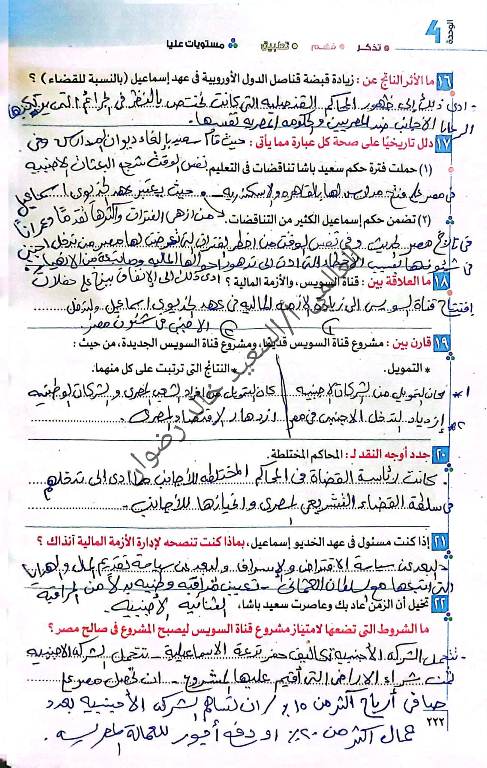 الوحدة 4
تذكر فهم تطبيق مستويات عليا
١٦ ما الأثر الناتج عن : زيادة قبضة قناصل الدول الأوروبية فى عهد إسماعيل (بالنسبة للقضاء) ؟
- ادى ذلك إلى ظهور المحاكم القنصلية التى كانت تختص بالنظر فى الجرائم التى يرتكبها
الرعايا الأجانب ضد المصريين والحكومة المصرية نفسها.
١٧ دلل تاريخيًا على صحة كل عبارة مما يأتى : حيث قام سعيد بإلغاء ديوان المدارس وفى
(١) حملت فترة حكم سعيد باشا تناقضات فى التعليم. نفس الوقت شجع البعثات الأجنبية
فى مصر على فتح مدارس لها بالقاهرة والاسكندرية. - حيث يعتبر عهد الخديوى اسماعيل
(٢) تضمن حكم إسماعيل الكثير من التناقضات. من ازهى الفترات وأكثرها تقدمًا وعمرانًا
فى تاريخ مصر الحديث وفى نفس الوقت من اخطر الفترات التى تعرضت لها مصر من تدخل اجنبى
فى شئونها بسبب الأخطاء التى ادت إلى تدهور احوالها المالية
١٨ ما العلاقة بين : قناة السويس، والأزمة المالية ؟ ادى ذلك إلى الانفاق ببذخ على حفلات
افتتاح قناة السويس الى زيادة الأزمة المالية فى عهد الخديوى اسماعيل والتدخل
الاجنبى فى شئون مصر
١٩ قارن بين : مشروع قناة السويس قديمًا، ومشروع قناة السويس الجديدة، من حيث :
التمويل. النتائج التى ترتبت على كل منهما.
١* كان التمويل من الشركات الاجنبية كان التمويل من افراد الشعب المصرى والشركات الوطنية
٢* إزدياد التدخل الاجنبى فى مصر ازدهار الاقتصاد المصرى.
٢٠ حدد أوجه النقد لـ : المحاكم المختلطة.
- كانت رئاسية القضاة فى المحاكم المختلطه للأجانب مما ادى الى تدخلهم
فى سلطة القضاء التشريعى المصرى وانحيازها للأجانب.
٢١ إذا كنت مسئول فى عهد الخديو إسماعيل، بماذا كنت تنصحه لإدارة الأزمة المالية آنذاك ؟
- البعد عن سياسة الاقتراض والإسراف والبعد عن سياسة تقديم المال والهدايا
التى اتبعها مع السلطان العثمانى - تعيين مراقبة وطنية بدلًا من المراقبة
الثنائية الأجنبية.
٢٢ تخيل أن الزمن عاد بك وعاصرت سعيد باشا،
ما الشروط التى تضعها لامتياز مشروع قناة السويس ليصبح المشروع فى صالح مصر ؟
- تتحمل الشركه الأجنبية تكاليف حفر ترعة الاسماعيلية - تتحمل الشركة الاجنبية
ثمن شراء الاراضى التى أقيم عليها المشروع - ان تحصل مصر على
صافى أرباح أكثر من ١٥٪ / ان تساهم الشركه الأجنبية بعدد
عمال اكثر من ٢٠٪ او دفع أجور للعمالة المصرية.
٢٢٢
السعيد خالد رضوان